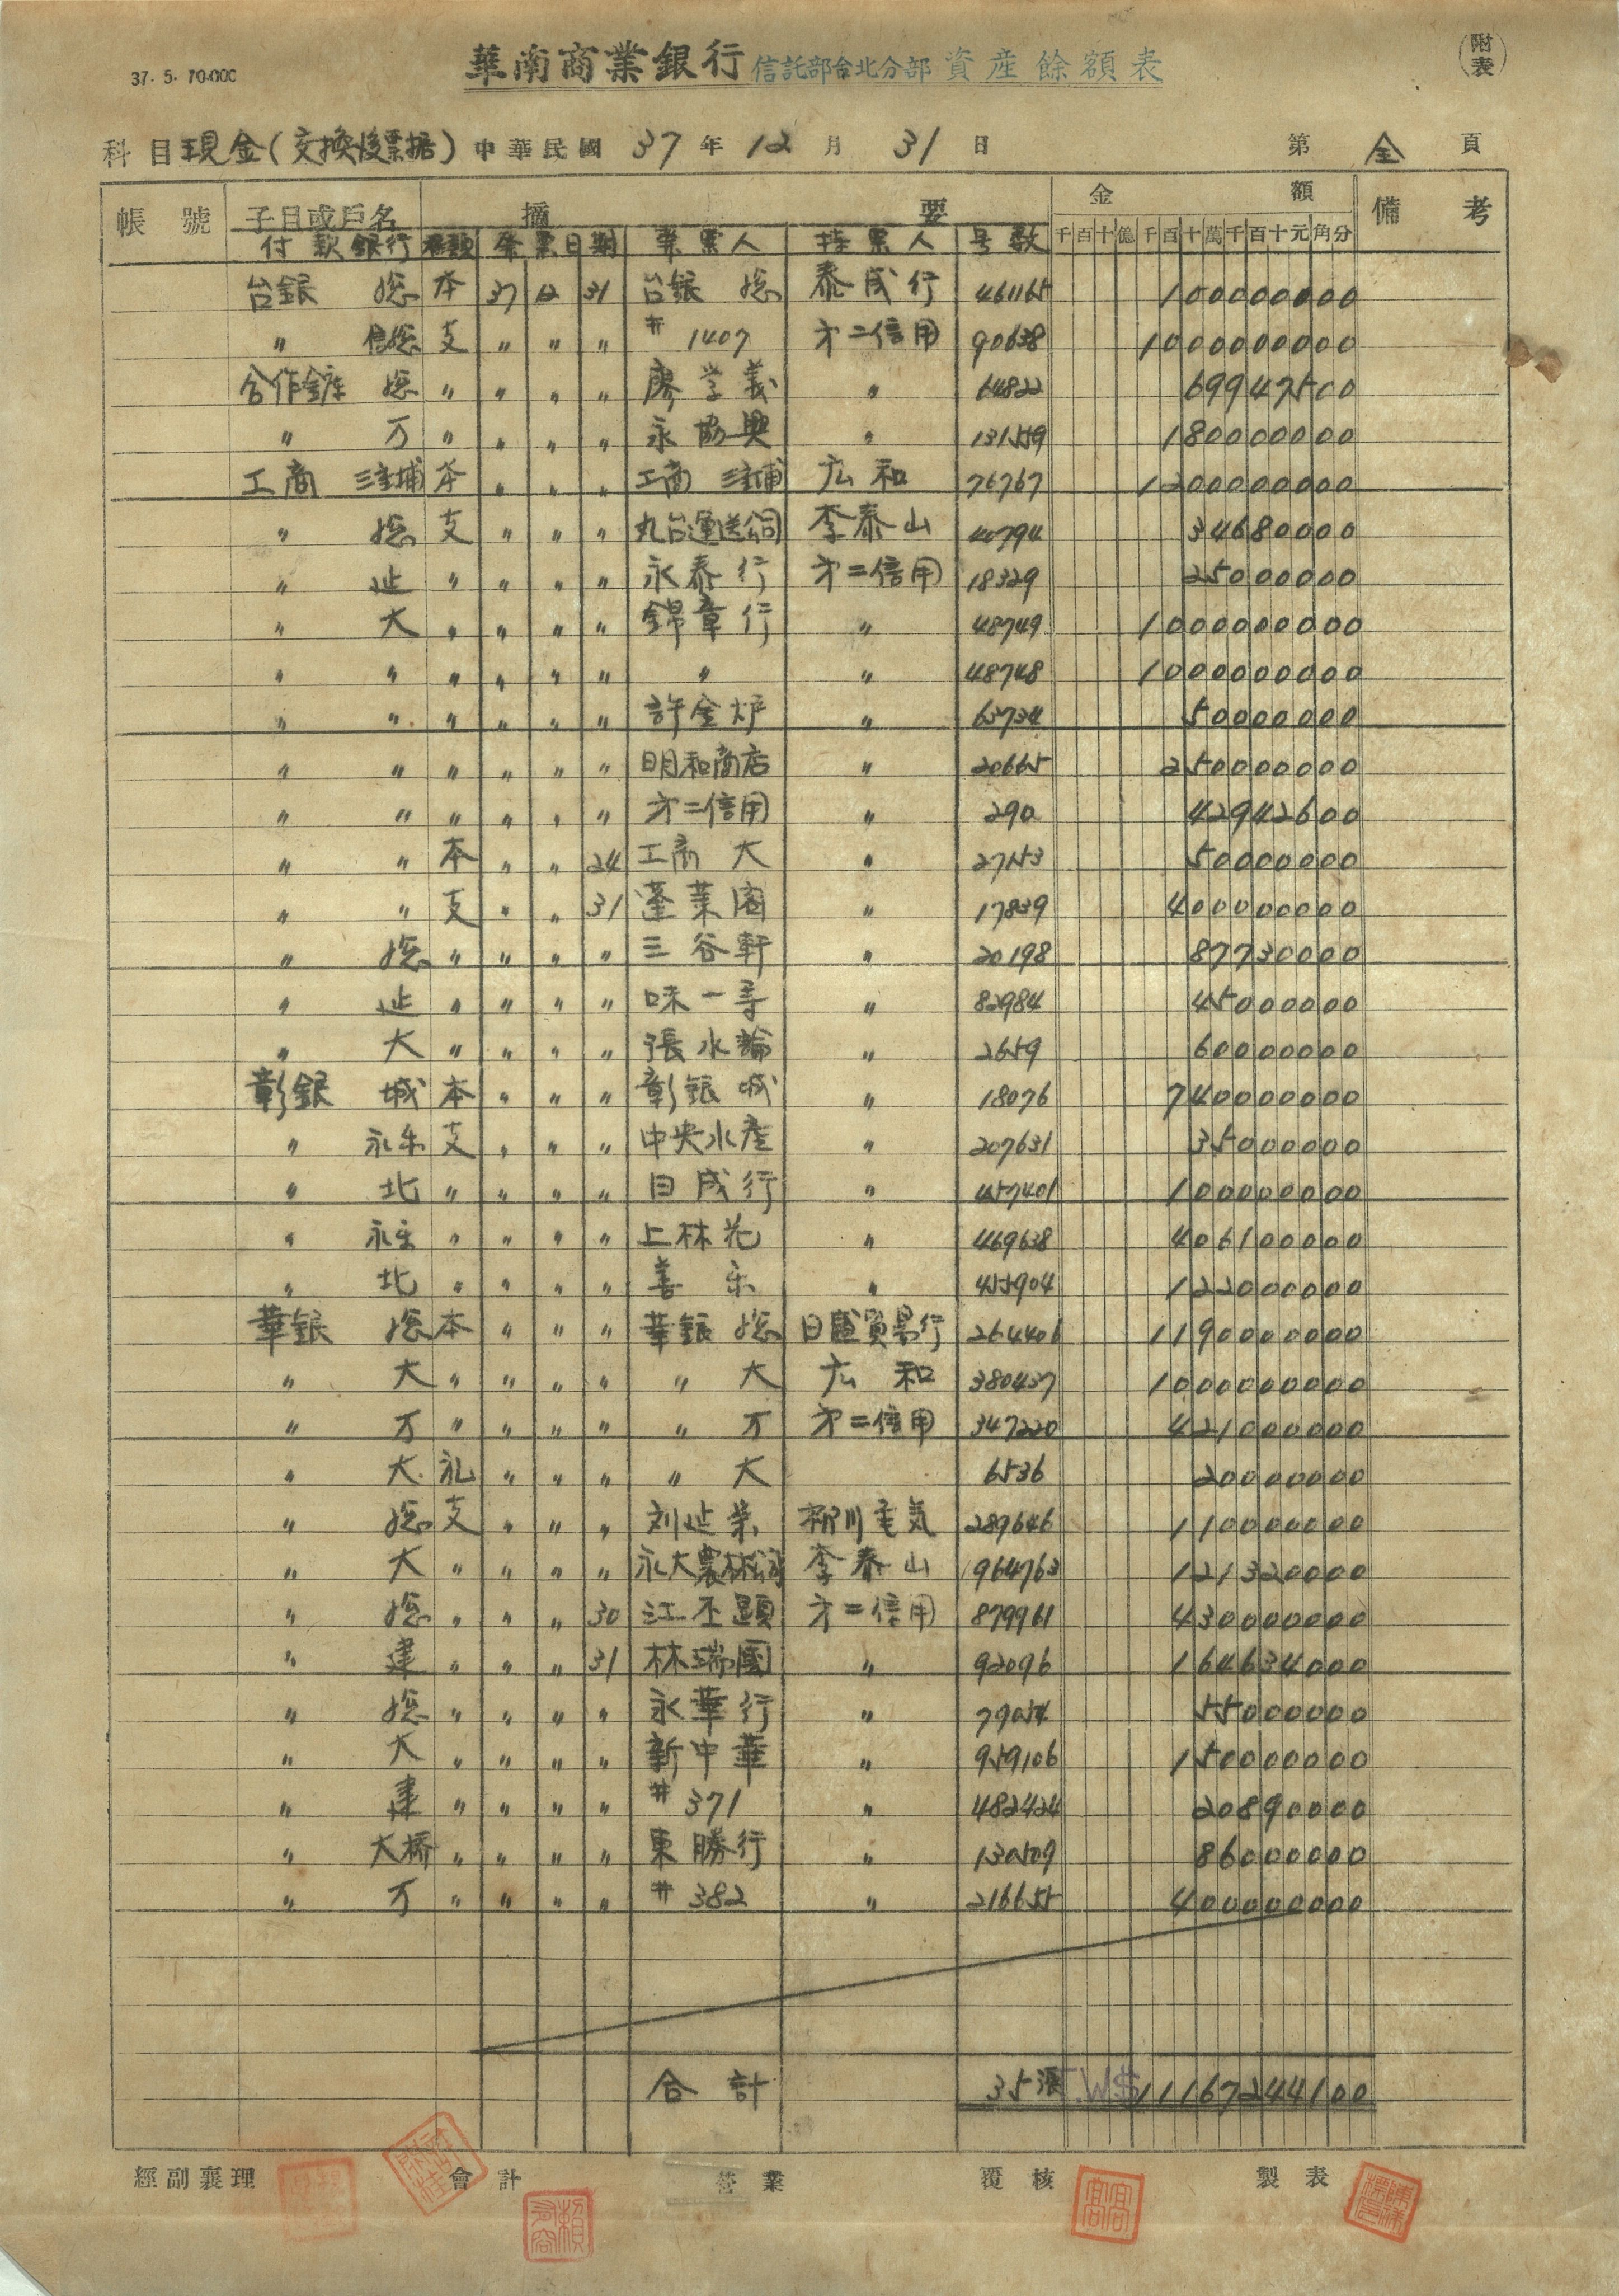 37. 5. 70.000
華南商業銀行 信託部台北分部 資產餘額表
(附表)
科目 現金(交換後票據) 中華民國 37 年 12 月 31 日 第 全 頁
帳號 子目或戶名 摘要 金額 備考
付款銀行 種類 發票日期 發票人 持票人 号数 千百十億千百十萬千百十元角分
台銀 總 本 37 12 31 台銀 總 泰成行 461165 100000000
〃 信總 支 〃 〃 〃 #1407 才二信用 90638 1000000000
合作金庫 總 〃 〃 〃 〃 廖学義 〃 64822 69947500
〃 万 〃 〃 〃 〃 永協興 〃 131559 180000000
工商 三重埔 本 〃 〃 〃 工商 三重埔 広和 76767 1200000000
〃 總 支 〃 〃 〃 丸台運送公司 李泰山 40794 34680000
〃 延 〃 〃 〃 〃 永泰行 才二信用 18329 25000000
〃 大 〃 〃 〃 〃 錦章行 〃 48749 1000000000
〃 〃 〃 〃 〃 〃 〃 〃 48748 1000000000
〃 〃 〃 〃 〃 〃 許金炉 〃 63734 50000000
〃 〃 〃 〃 〃 〃 明和商店 〃 20665 250000000
〃 〃 〃 〃 〃 〃 才二信用 〃 290 42942600
〃 〃 本 〃 〃 24 工商 大 〃 27153 50000000
〃 〃 支 〃 〃 31 蓬莱閣 〃 17839 400000000
〃 總 〃 〃 〃 〃 三谷軒 〃 20198 87730000
〃 延 〃 〃 〃 〃 味一 〃 82984 45000000
〃 大 〃 〃 〃 〃 張水輪 〃 2659 60000000
彰銀 城 本 〃 〃 〃 彰銀 城 〃 18076 740000000
〃 永乐 支 〃 〃 〃 中央水産 〃 207631 35000000
〃 北 〃 〃 〃 〃 日成行 〃 457401 100000000
〃 永乐 〃 〃 〃 〃 上林花 〃 469638 406100000
〃 北 〃 〃 〃 〃 善乐 〃 455904 122000000
華銀 總 本 〃 〃 〃 華銀 總 日盛貿易行 264406 1190000000
〃 大 〃 〃 〃 〃 〃 大 広和 380437 1000000000
〃 万 〃 〃 〃 〃 〃 万 才二信用 347220 421000000
〃 大 礼 〃 〃 〃 〃 大 6536 20000000
〃 總 支 〃 〃 〃 刘延荣 柳川電気 289646 110000000
〃 大 〃 〃 〃 〃 永大農林公司 李泰山 964763 121320000
〃 總 〃 〃 〃 30 江丕顕 才二信用 879961 430000000
〃 建 〃 〃 〃 31 林瑞圖 〃 92096 164634000
〃 總 〃 〃 〃 〃 永華行 〃 79054 55000000
〃 大 〃 〃 〃 〃 新中華 〃 959106 150000000
〃 建 〃 〃 〃 〃 #371 〃 482424 20890000
〃 大橋 〃 〃 〃 〃 東勝行 〃 130509 86000000
〃 万 〃 〃 〃 〃 #382 〃 216655 400000000
合計 35張 T.W.$ 11167244100
經副襄理 會計 營業 覆核 製表